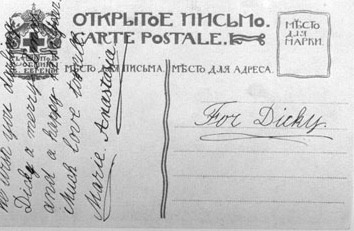 ОТКРЫТОЕ ПИСЬМО.
CARTE POSTALE.
МѢСТО
ДЛЯ
МАРКИ.
МѢСТО ДЛЯ ПИСЬМА.
МѢСТО ДЛЯ АДРЕСА.
For Dicky.
We wish you darling
Dicky a merry
and a happy
Much love to
Marie Anastasia